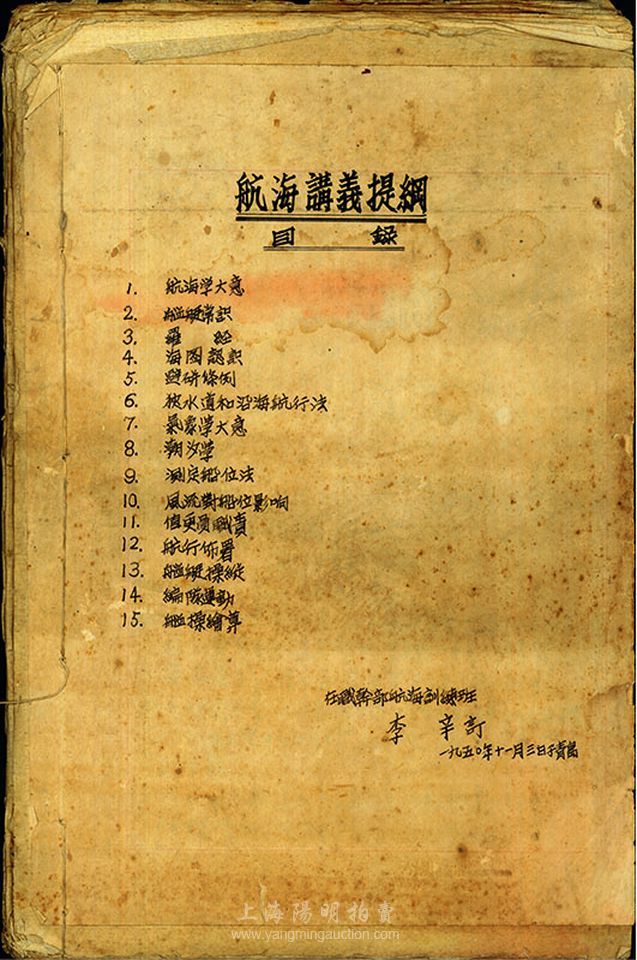 航海講義提綱
目錄
1. 航海学大意
2. 艦艇常识
3. 羅經
4. 海图認识
5. 避碰條例
6. 狹水道和沿海航行法
7. 氣象學大意
8. 潮汐学
9. 測定船位法
10. 風流對船位影响
11. 值更員職責
12. 航行佈署
13. 艦艇操縱
14. 編隊運動
15. 艦操繪算
在職幹部航海訓練班
李辛訂
一九五〇年十一月三日于青島
上海陽明拍賣
www.yangmingauction.com